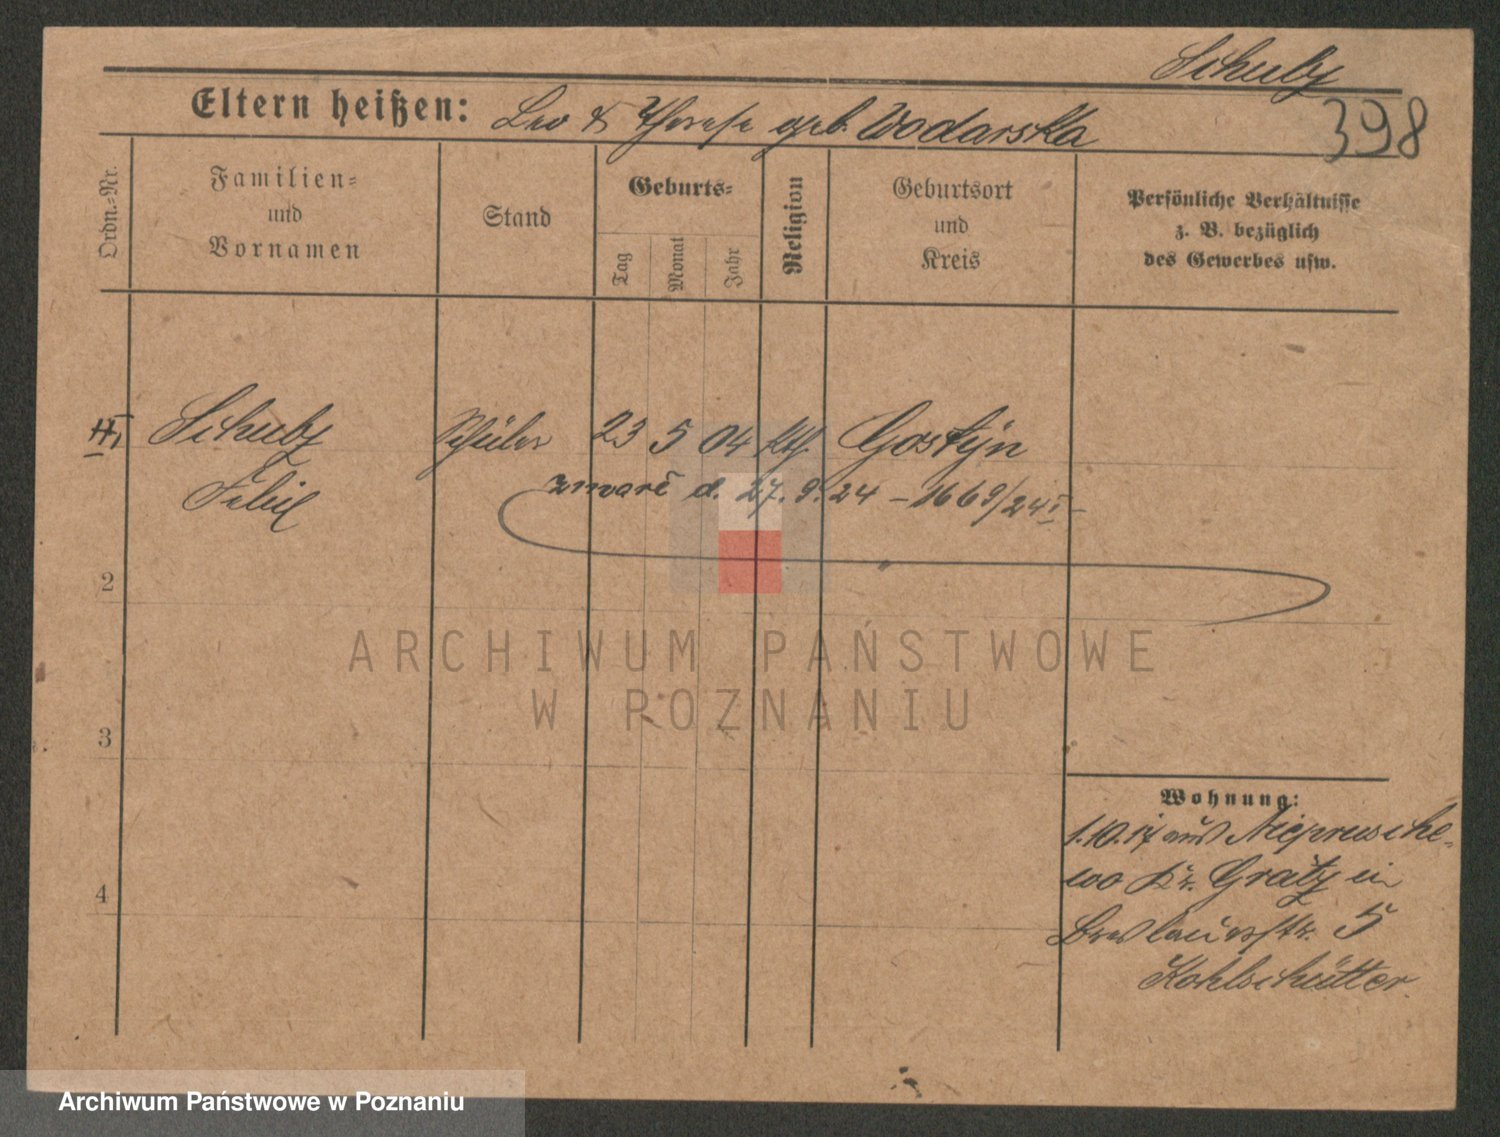 Schulz
398
Eltern heißen: Leo & Therese geb. Wodarska
Ordn.-Nr.
Familien-
und
Vornamen
Stand
Geburts-
Tag
Monat
Jahr
Religion
Geburtsort
und
Kreis
Persönliche Verhältnisse
z. B. bezüglich
des Gewerbes usw.
Schulz Schüler 23 5 04 kth. Gostyn
Felix
zmarł d. 27. 9. 24 - 1669/24
2
3
4
Wohnung:
1.10.17 aus Nieprusche-
wo Kr. Grätz in
Breslauerstr. 5
Kohlschütter.
ARCHIWUM PAŃSTWOWE
W POZNANIU
Archiwum Państwowe w Poznaniu